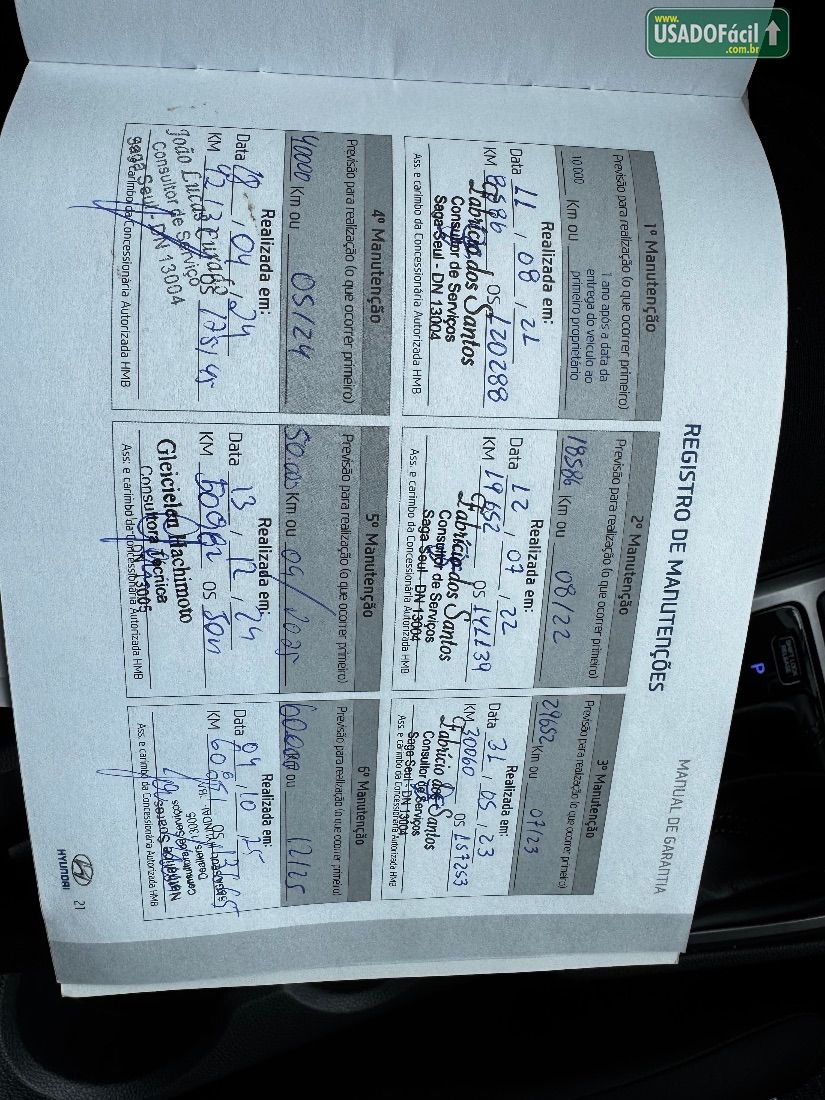 www.
USADOFácil
.com.br
MANUAL DE GARANTIA
REGISTRO DE MANUTENÇÕES
1º Manutenção
Previsão para realização (o que ocorrer primeiro)
10 000 Km ou 1 ano após a data da
entrega do veículo ao
primeiro proprietário
Realizada em:
Data 11 , 08 , 21
KM 8586 OS 120288
Fabrício dos Santos
Consultor de Serviços
Saga Seul - DN 13004
Ass. e carimbo da Concessionária Autorizada HMB
2º Manutenção
Previsão para realização (o que ocorrer primeiro)
18586 Km ou 08/22
Realizada em:
Data 12 , 07 , 22
KM 19652 OS 141139
Fabrício dos Santos
Consultor de Serviços
Saga Seul - DN 13004
Ass. e carimbo da Concessionária Autorizada HMB
3º Manutenção
Previsão para realização (o que ocorrer primeiro)
29652 Km ou 07/23
Realizada em:
Data 31 , 05 , 23
KM 30060 OS 157253
Fabrício dos Santos
Consultor de Serviços
Saga Seul - DN 13004
Ass. e carimbo da Concessionária Autorizada HMB
4º Manutenção
Previsão para realização (o que ocorrer primeiro)
40000 Km ou 05/24
Realizada em:
Data , 04 , 24
KM OS 175145
João Lucas
Consultor de Serviço
Saga Seul - DN 13004
Ass. e carimbo da Concessionária Autorizada HMB
5º Manutenção
Previsão para realização (o que ocorrer primeiro)
50.000 Km ou 04/2025
Realizada em:
Data 13 , 12 , 24
KM OS
Gleicielen Hachimoto
Consultora Técnica
DN 13005
Ass. e carimbo da Concessionária Autorizada HMB
6º Manutenção
Previsão para realização (o que ocorrer primeiro)
60.000 Km ou 12/25
Realizada em:
Data 09 , 10 , 25
KM OS
Dealers
Consultora de Serviços
Nathália Soares
Ass. e carimbo da Concessionária Autorizada HMB
HYUNDAI
21
P